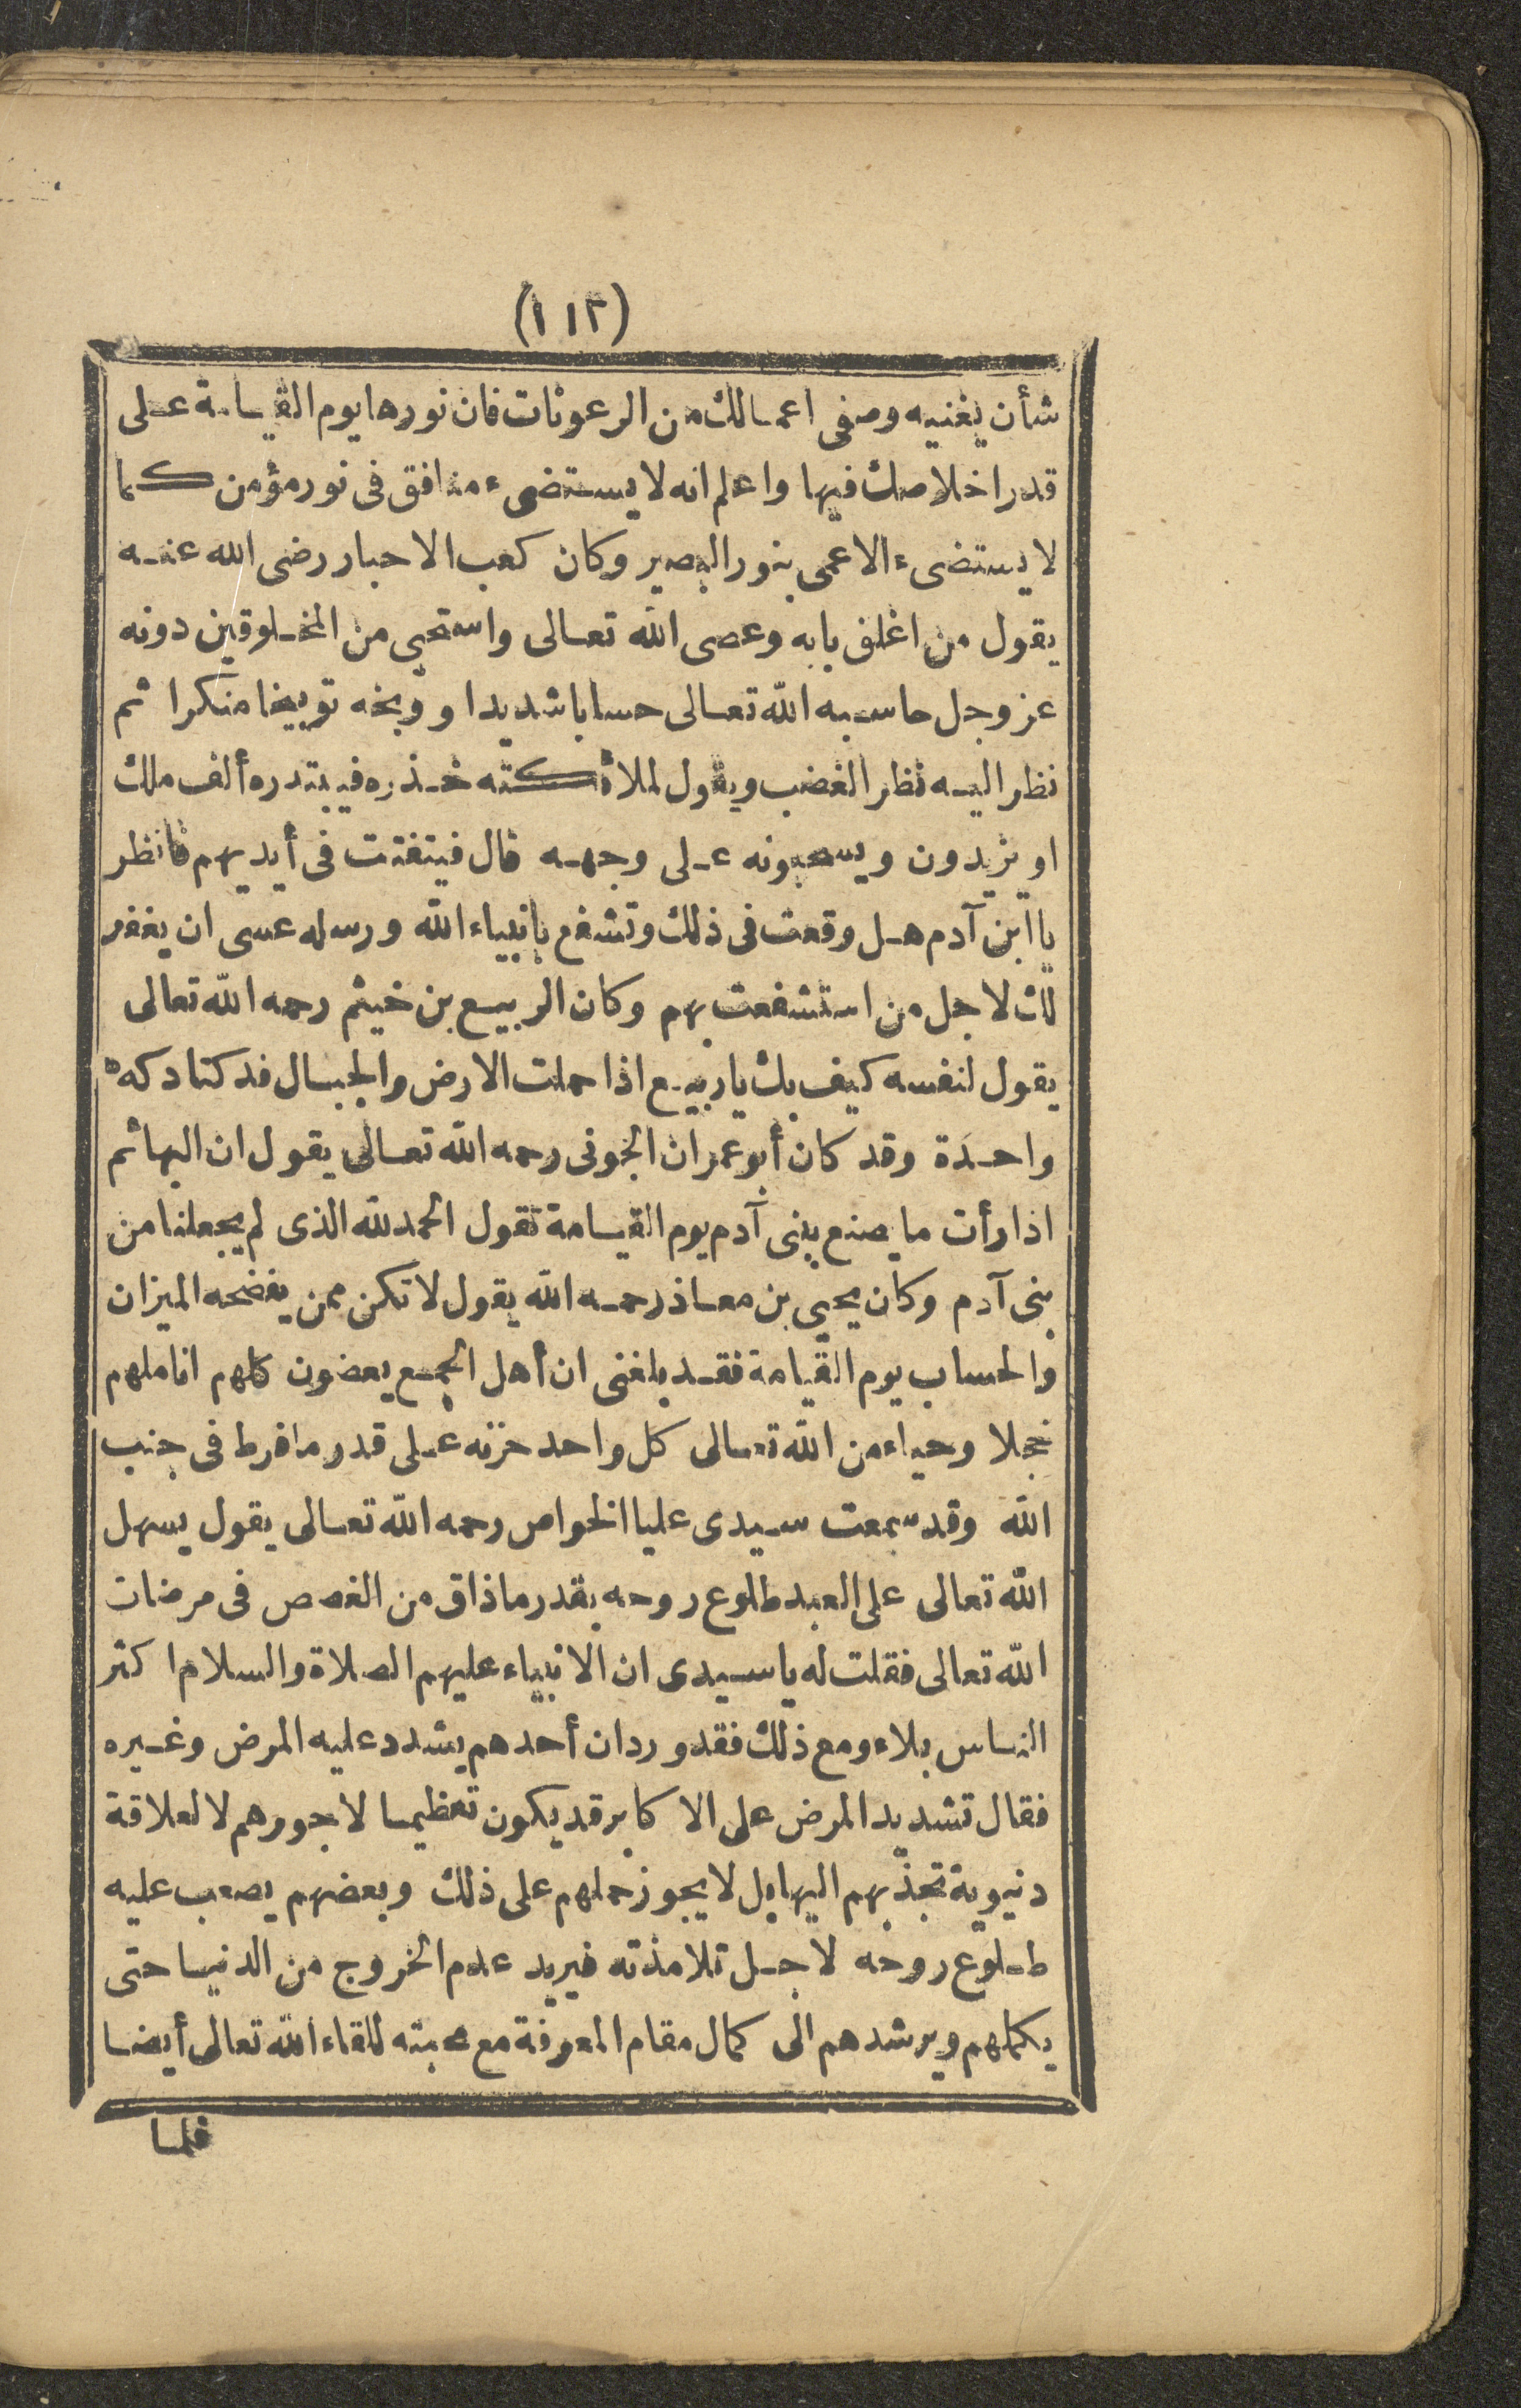 (١١٢)
شأن يغنيه وصفى اعمالك من الرعونات فان نورها يوم القيامة على
قدر اخلاصك فيها واعلم انه لا يستضىء منافق فى نور مؤمن كما
لا يستضىء الاعمى بنور البصير وكان كعب الاحبار رضى الله عنه
يقول من اغلق بابه وعصى الله تعالى واستحى من المخلوقين دونه
عز وجل حاسبه الله تعالى حسابا شديدا ووبخه توبيخا منكرا ثم
نظر اليه نظر الغضب ويقول لملائكته خذره فيبتدره ألف ملك
او يزيدون ويسحبونه على وجهه قال فيتفتت فى أيديهم فانظر
يا ابن آدم هل وقعت فى ذلك وتشفع بانبياء الله ورسله عسى ان يغفر
لك لاجل من استشفعت بهم وكان الربيع بن خيثم رحمه الله تعالى
يقول لنفسه كيف بك ياربيع اذا حملت الارض والجبال فدكتا دكة
واحدة وقد كان أبو عمران الجونى رحمه الله تعالى يقول ان البهائم
اذا رأت ما يصنع ببنى آدم يوم القيامة تقول الحمد لله الذى لم يجعلنا من
بنى آدم وكان يحيى بن معاذ رحمه الله يقول لا تكن ممن يفضحه الميزان
والحساب يوم القيامة فقد بلغنى ان أهل الجمع يعضون كلهم اناملهم
خجلا وحياء من الله تعالى كل واحد حزنه على قدر ما فرط فى جنب
الله وقد سمعت سيدى عليا الخواص رحمه الله تعالى يقول يسهل
الله تعالى على العبد طلوع روحه بقدر ما ذاق من الغصص فى مرضات
الله تعالى فقلت له يا سيدى ان الانبياء عليهم الصلاة والسلام اكثر
الناس بلاء ومع ذلك فقد ورد ان أحدهم يشدد عليه المرض وغيره
فقال تشديد المرض على الاكابر قد يكون تعظيما لاجورهم لا لعلاقة
دنيوية تجذبهم اليها بل لا يجوز حملهم على ذلك وبعضهم يصعب عليه
طلوع روحه لاجل تلامذته فيريد عدم الخروج من الدنيا حتى
يكملهم ويرشدهم الى كمال مقام المعرفة مع محبته للقاء الله تعالى أيضا
فلما